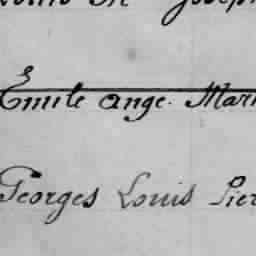 Emile Ange. Mari
Georges Louis Pier